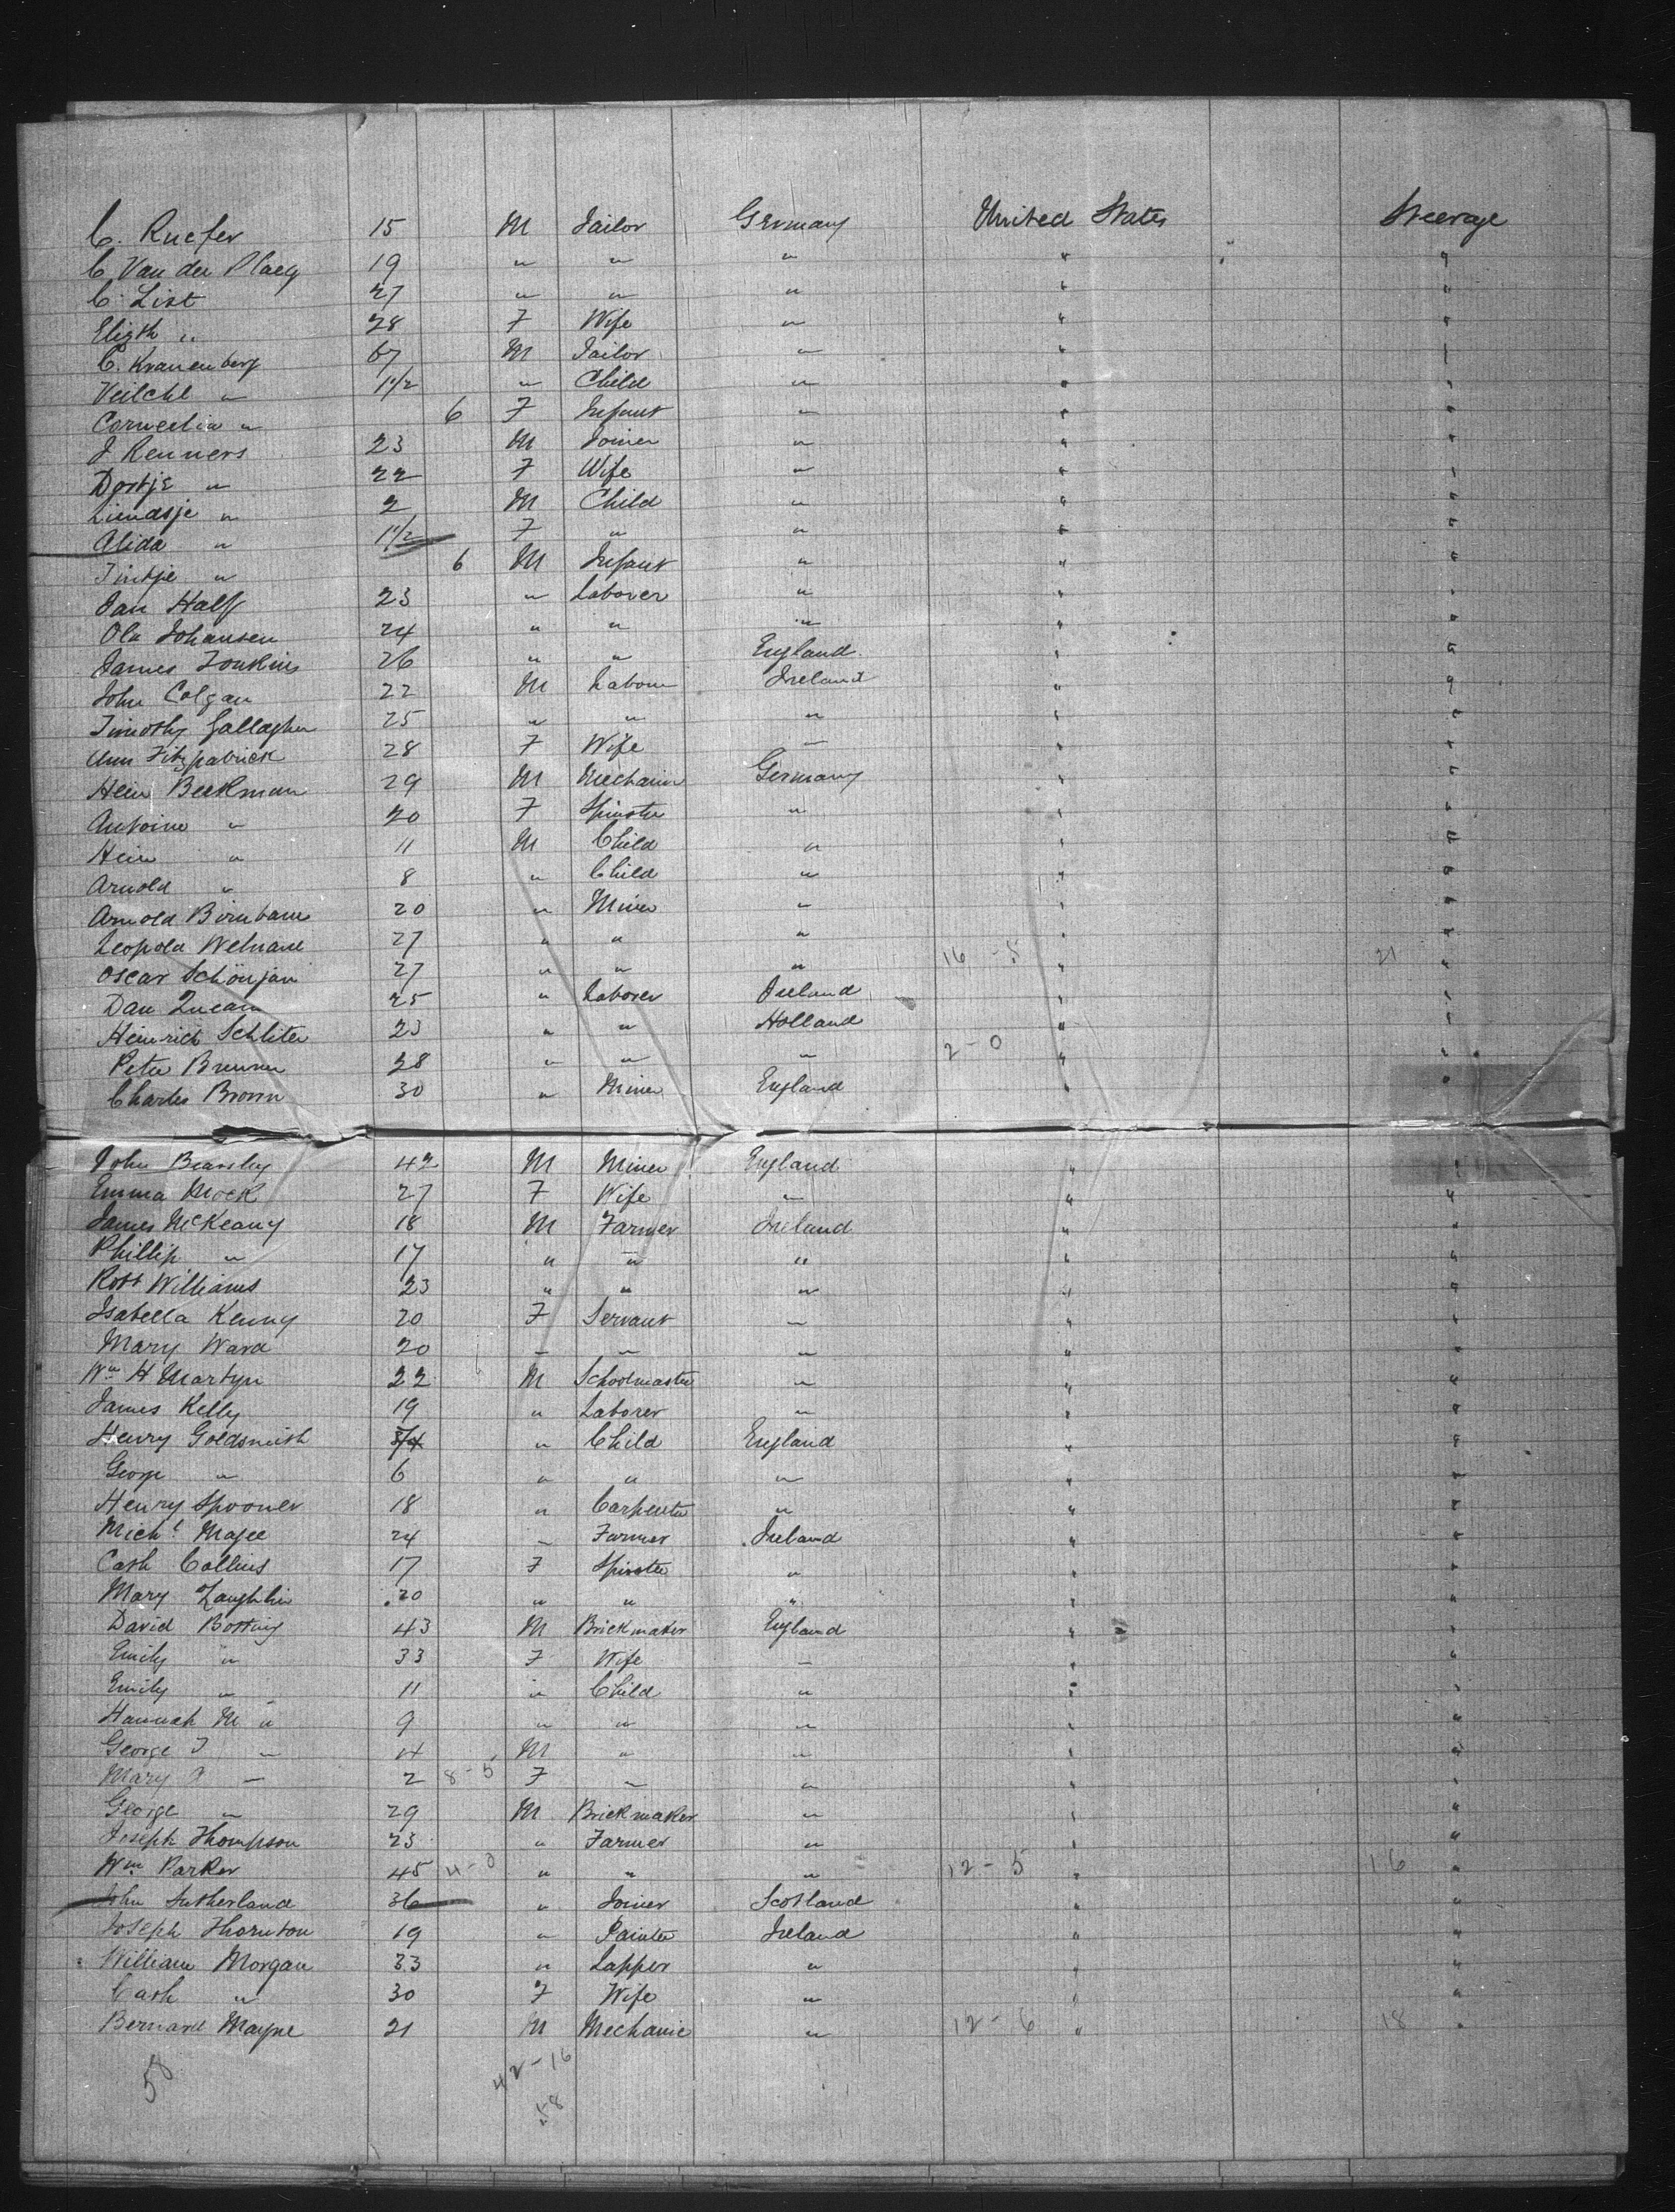 C. Ruefer 15 M Tailor Germany United States Steerage
C Van der Plaeg 19 " " " " "
C. List 27 " " " " "
Elizth " 28 F Wife " " "
C. Kranenberg 67 M Tailor " " "
Veilchl " 1 1/2 " Child " " "
Corneelia " 6 F Infant " " "
J Renners 23 M Joiner " " "
Dortje " 22 F Wife " " "
Liendsje " 2 M Child " " "
Alida " 1 1/2 F " " " "
Tintje " 6 M Infant " " "
Jan Half 23 " Laborer " " "
Ola Johansen 24 " " " " "
James Tonkins 26 " " England " "
John Colgan 22 M Labour Ireland " "
Timothy Gallagher 25 " " " " "
Ann Fitzpatrick 28 F Wife " " "
Hein Beekman 29 M Mechanic Germany " "
Antoine " 20 F Spinster " " "
Hein " 11 M Child " " "
Arnold " 8 " Child " " "
Arnold Birnbaum 20 " Miner " " "
Leopold 27 " " " " "
Oscar Schönjan 27 " " " 16 - 5 " 21 "
Dan 25 " Laborer Ireland " "
Heinrich Schliter 23 " " Holland " "
Peter Brunner 28 " " " 2 - 0 " "
Charles Brown 30 " Miner England " "
John Bearsley 42 M Miner England " "
Emma Mock 27 F Wife " " "
James McKeany 18 M Farmer Ireland " "
Phillip " 17 " " " " "
Robt Williams 23 " " " " "
Isabella Kenny 20 F Servant " " "
Mary Ward 20 " " " " "
Wm H Martyn 22 M Schoolmaster " " "
James Kelly 19 " Laborer " " "
Henry Goldsmith " Child England " "
George " 6 " " " " "
Henry Spooner 18 " Carpenter " " "
Michl Magee 24 " Farmer Ireland " "
Cath Collins 17 F Spinster " " "
Mary Laughlin 20 " " " " "
David Botting 43 M Brickmaker England " "
Emily " 33 F Wife " " "
Emily " 11 " Child " " "
Hannah M " 9 " " " " "
George T " 4 M " " " "
Mary " 2 8 - 5 F " " " "
George " 29 M Brickmaker " " "
Joseph Thompson 23 " Farmer " " "
Wm Parker 45 4 - 0 " " " 12 - 5 " 16 "
John Sutherland 36 " Joiner Scotland " "
Joseph Thornton 19 " Painter Ireland " "
William Morgan 33 " Lapper " " "
Cath " 30 F Wife " " "
Bernard Mayne 21 M Mechanic " 12 - 6 " 18 "
58 42 - 16
58